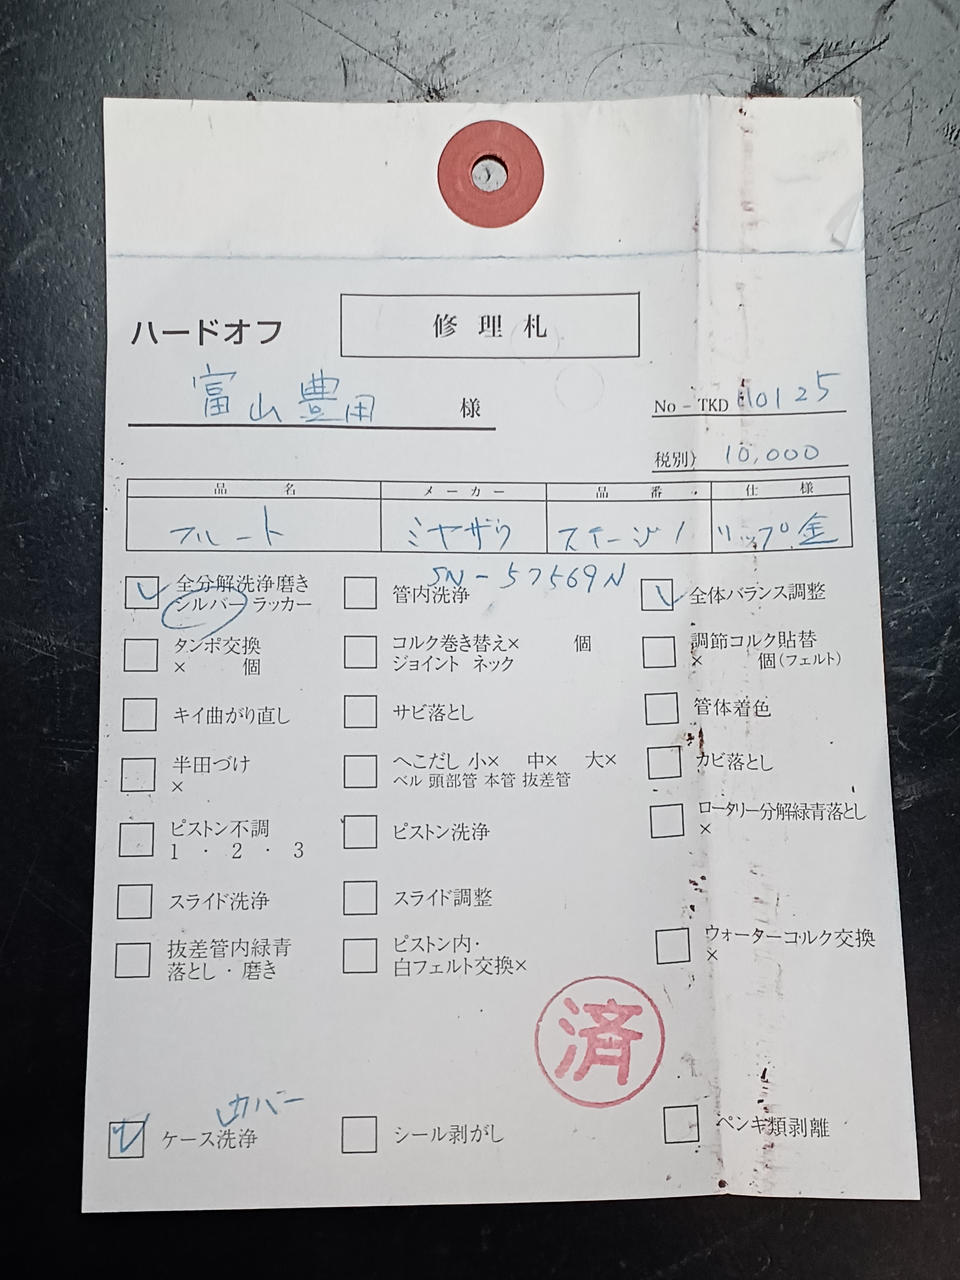 ハードオフ
修理札
富山豊田 様
No－TKD 110125
税別） 10,000
品名 メーカー 品番 仕様
フルート ミヤザワ ステージ1 リップ金
SN-57569N
全分解洗浄磨き
シルバー ラッカー
管内洗浄
全体バランス調整
タンポ交換
× 個
コルク巻き替え× 個
ジョイント ネック
調節コルク貼替
× 個(フェルト)
キイ曲がり直し
サビ落とし
管体着色
半田づけ
×
へこだし 小× 中× 大×
ベル 頭部管 本管 抜差管
カビ落とし
ピストン不調
1・2・3
ピストン洗浄
ロータリー分解緑青落とし
×
スライド洗浄
スライド調整
抜差管内緑青
落とし・磨き
ピストン内・
白フェルト交換×
ウォーターコルク交換
×
済
カバー
ケース洗浄
シール剥がし
ペンキ類剥離